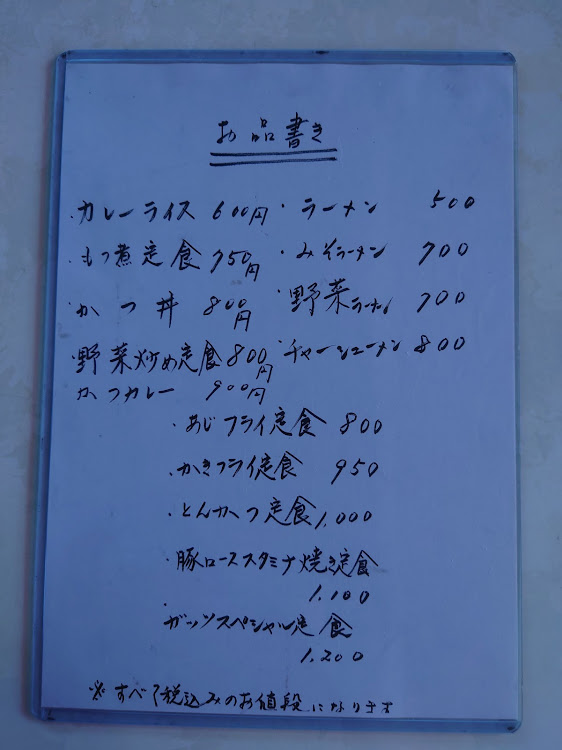 お品書き
・カレーライス 600円 ・ラーメン 500
・もつ煮定食 750円 ・みそラーメン 700
・かつ丼 800円 ・野菜ラーメン 700
・野菜炒め定食 800円 ・チャーシューメン 800
・かつカレー 900円
・あじフライ定食 800
・かきフライ定食 950
・とんかつ定食 1,000
・豚ローススタミナ焼き定食
1,100
・ガッツスペシャル定食
1,200
※すべて税込みのお値段になります